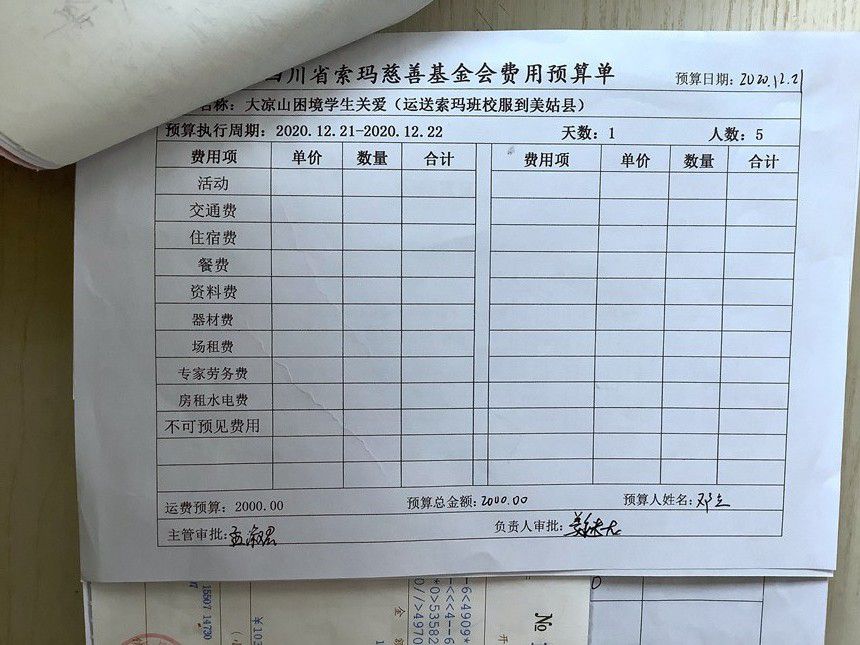 四川省索玛慈善基金会费用预算单 预算日期: 2020.12.21
名称: 大凉山困境学生关爱（运送索玛班校服到美姑县）
预算执行周期: 2020.12.21-2020.12.22 天数: 1 人数: 5
费用项 单价 数量 合计 费用项 单价 数量 合计
活动
交通费
住宿费
餐费
资料费
器材费
场租费
专家劳务费
房租水电费
不可预见费用
运费预算: 2000.00 预算总金额: 2000.00 预算人姓名: 邓立
主管审批: 负责人审批:
-6<4909*
-<<<4--6
*0>53582
0//>4970
15507 14730
¥103
金
№
开